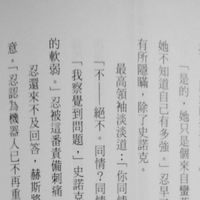 「是的，她只是個來自蠻
她不知道自己有多強。」忍早
有所隱瞞，除了史諾克。
最高領袖淡淡道：「你同情
「不——絕不。同情？同情
「我察覺到問題，」史諾克
的軟弱。」忍被這番責備刺痛
忍還來不及回答，赫斯將
意，「忍認為機器人已不再重